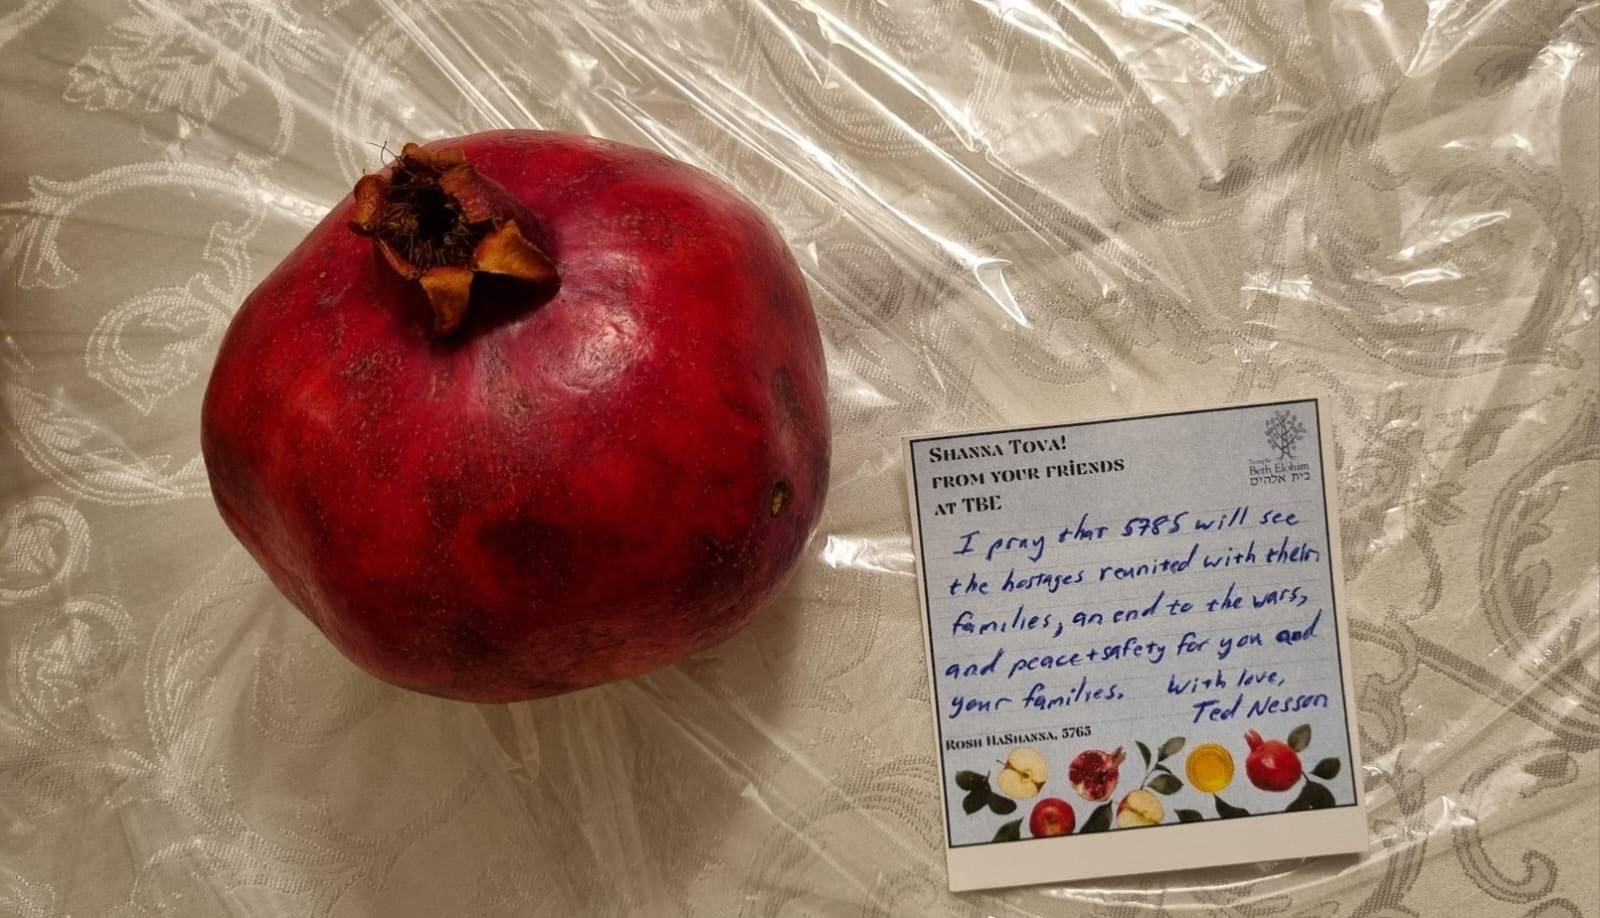 SHANNA TOVA!
FROM YOUR FRIENDS
AT TBE
Temple
Beth Elohim
בית אלהים
I pray that 5785 will see
the hostages reunited with their
families, an end to the wars,
and peace + safety for you and
your families. With love,
Ted Nesson
ROSH HASHANNA, 5765